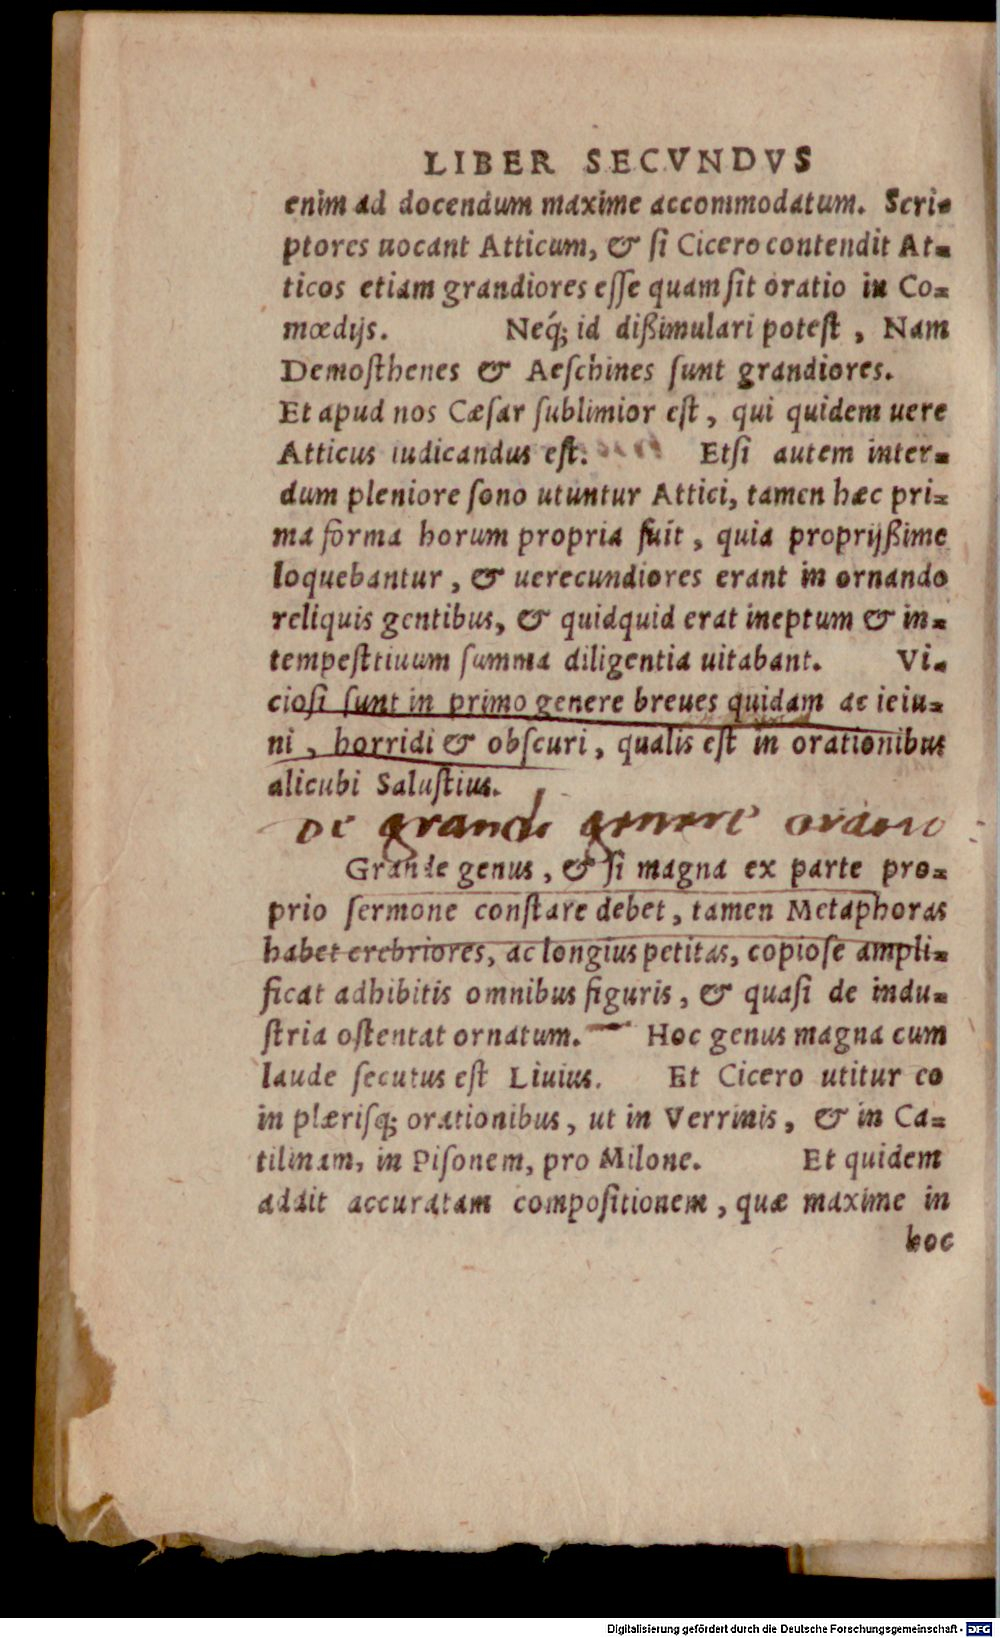 LIBER SECVNDVS
enim ad docendum maxime accommodatum. Scri=
ptores uocant Atticum, & ſi Cicero contendit At=
ticos etiam grandiores eſſe quam ſit oratio in Co=
mœdijs. Neq́; id dißimulari poteſt, Nam
Demoſthenes & Aeſchines ſunt grandiores.
Et apud nos Cæſar ſublimior eſt, qui quidem uere
Atticus iudicandus eſt. Etſi autem inter=
dum pleniore ſono utuntur Attici, tamen hæc pri=
ma forma horum propria fuit, quia proprijßime
loquebantur, & uerecundiores erant in ornando
reliquis gentibus, & quidquid erat ineptum & in=
tempeſttiuum ſumma diligentia uitabant. Vi=
cioſi ſunt in primo genere breues quidam ac ieiu=
ni, horridi & obſcuri, qualis eſt in orationibus
alicubi Saluſtius.
De grandi genere
Grande genus, & ſi magna ex parte pro=
prio ſermone conſtare debet, tamen Metaphoras
habet crebriores, ac longius petitas, copioſe ampli=
ficat adhibitis omnibus figuris, & quaſi de indu=
ſtria oſtentat ornatum. Hoc genus magna cum
laude ſecutus eſt Liuius. Et Cicero utitur eo
in plæriſq; orationibus, ut in Verrinis, & in Ca=
tilinam, in Piſonem, pro Milone. Et quidem
addit accuratam compoſitionem, quæ maxime in
hoc
Digitalisierung gefördert durch die Deutsche Forschungsgemeinschaft - DFG